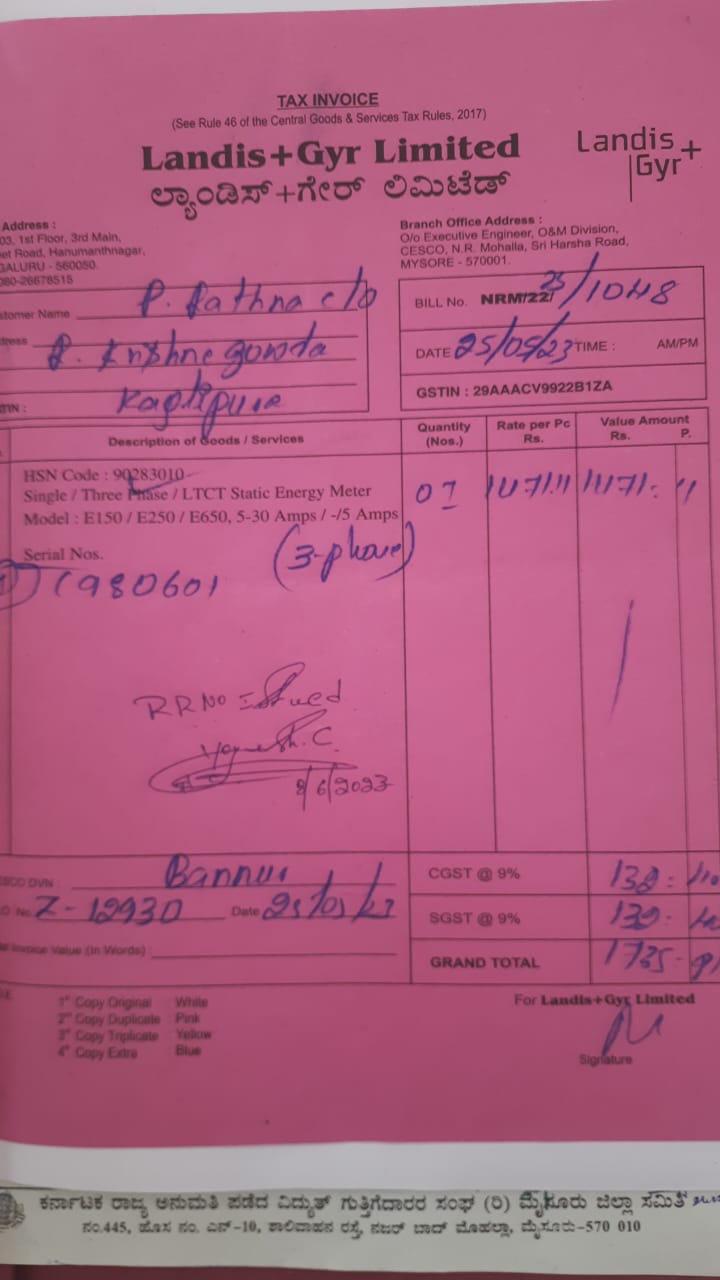 TAX INVOICE
(See Rule 46 of the Central Goods & Services Tax Rules, 2017)
Landis+Gyr Limited
Landis
Gyr+
ಲ್ಯಾಂಡಿಸ್+ಗೇರ್ ಲಿಮಿಟೆಡ್
Address :
03, 1st Floor, 3rd Main,
et Road, Hanumanthnagar,
GALURU - 560050.
080-26678515
Branch Office Address :
O/o Executive Engineer, O&M Division,
CESCO, N.R. Mohalla, Sri Harsha Road,
MYSORE - 570001.
stomer Name P. Rathna c/o
ress P. Krishne gowda
TIN :
BILL No. NRM/22/ 23/1048
DATE 25/05/23 TIME : AM/PM
GSTIN : 29AAACV9922B1ZA
Description of Goods / Services
Quantity (Nos.)
Rate per Pc Rs.
Value Amount Rs. P.
HSN Code : 90283010
Single / Three Phase / LTCT Static Energy Meter
Model : E150 / E250 / E650, 5-30 Amps / -/5 Amps
01
Serial Nos.
(3-phase)
1) 1980601
RR No Issued
Yogesh. C
8/6/2023
DVN : Bannur
No. Z-12930 Date
Invoice Value (in Words) :
CGST @ 9%
SGST @ 9%
GRAND TOTAL
1st Copy Original : White
2nd Copy Duplicate : Pink
3rd Copy Triplicate : Yellow
4th Copy Extra : Blue
For Landis+Gyr Limited
Signature
ಕರ್ನಾಟಕ ರಾಜ್ಯ ಅನುಮತಿ ಪಡೆದ ವಿದ್ಯುತ್ ಗುತ್ತಿಗೆದಾರರ ಸಂಘ (ರಿ) ಮೈಸೂರು ಜಿಲ್ಲಾ ಸಮಿತಿ
ನಂ.445, ಹೊಸ ನಂ. ಎನ್-10, ಶಾಲಿವಾಹನ ರಸ್ತೆ, ನಜರ್ ಬಾದ್ ಮೊಹಲ್ಲಾ, ಮೈಸೂರು-570 010